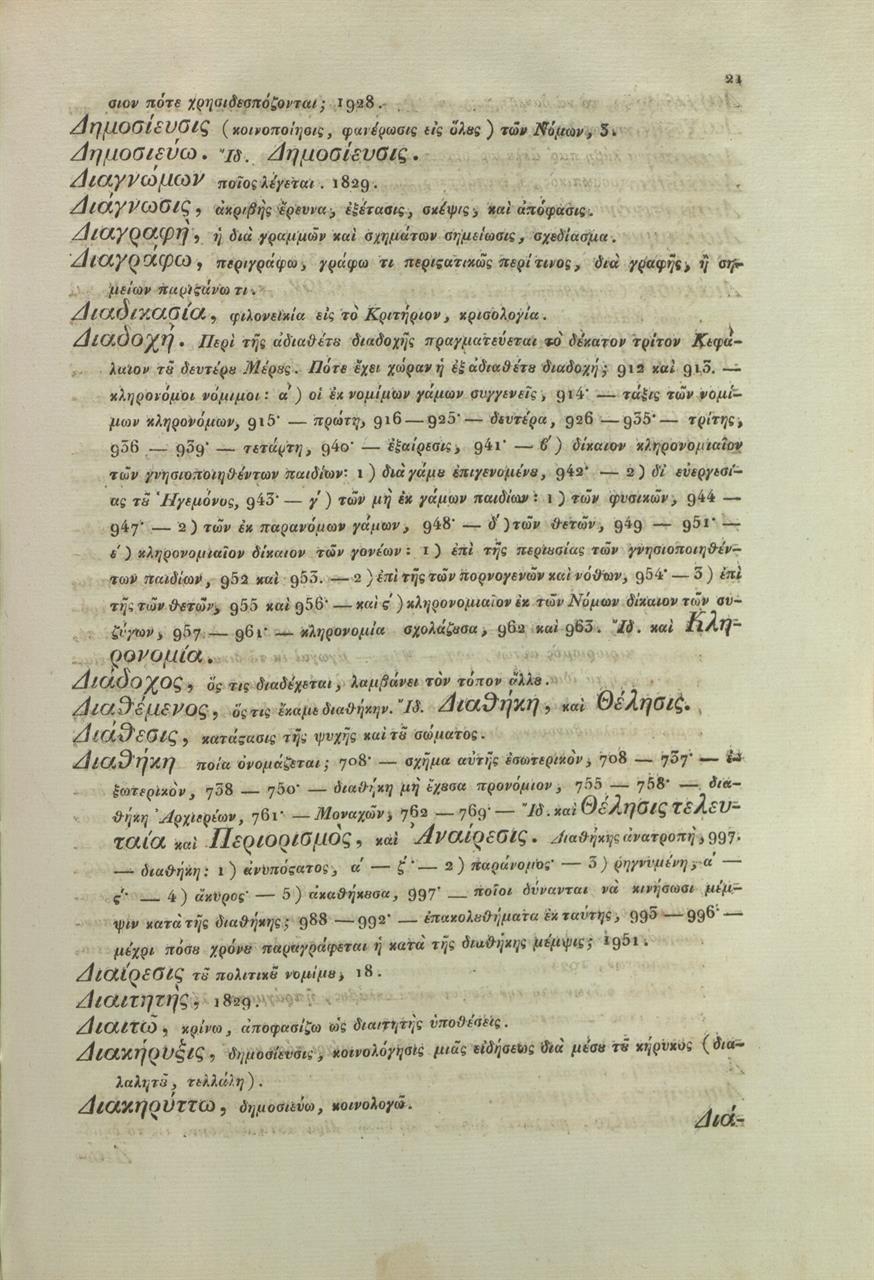 21
σιον πότε χρησιδεσπόζονται; 1928.
Δημοσίευσις (κοινοποίησις, φανέρωσις εἰς ὅλȣς) τῶν Νόμων, 3.
Δημοσιεύω. Ἴδ. Δημοσίευσις.
Διαγνώμων ποῖος λέγεται. 1829.
Διάγνωσις, ἀκριβὴς ἔρευνα, ἐξέτασις, σκέψις, καὶ ἀπόφασις.
Διαγραφὴ, ἡ διὰ γραμμῶν καὶ σχημάτων σημείωσις, σχεδίασμα.
Διαγράφω, περιγράφω, γράφω τι περιϛατικῶς περί τινος, διὰ γραφῆς, ἢ ση-
μείων παριϛάνω τι.
Διαδικασία, φιλονεικία εἰς τὸ Κριτήριον, κρισολογία.
Διαδοχή. Περὶ τῆς ἀδιαθέτȣ διαδοχῆς πραγματεύεται τὸ δέκατον τρίτον Κεφά-
λαιον τȣ͂ δευτέρȣ Μέρȣς. Πότε ἔχει χώραν ἡ ἐξ ἀδιαθέτȣ διαδοχή; 912 καὶ 913. —
κληρονόμοι νόμιμοι: α΄) οἱ ἐκ νομίμων γάμων συγγενεῖς, 914· — τάξις τῶν νομί-
μων κληρονόμων, 915· — πρώτη, 916 — 925· — δευτέρα, 926 — 935· — τρίτης,
936 — 939· — τετάρτη, 940· — ἐξαίρεσις, 941· — β΄) δίκαιον κληρονομιαῖον
τῶν γνησιοποιηθέντων παιδίων: 1) διὰ γάμȣ ἐπιγενομένȣ, 942· — 2) δι᾽ εὐεργεσί-
ας τȣ͂ Ἡγεμόνος, 943· — γ΄) τῶν μὴ ἐκ γάμων παιδίων: 1) τῶν φυσικῶν, 944 —
947· — 2) τῶν ἐκ παρανόμων γάμων, 948· — δ΄) τῶν θετῶν, 949 — 951· —
ε΄) κληρονομιαῖον δίκαιον τῶν γονέων: 1) ἐπὶ τῆς περιυσίας τῶν γνησιοποιηθέν-
των παιδίων, 952 καὶ 953. — 2) ἐπὶ τῆς τῶν πορνογενῶν καὶ νόθων, 954· — 3) ἐπὶ
τῆς τῶν θετῶν, 955 καὶ 956· — καὶ ϛ΄) κληρονομιαῖον ἐκ τῶν Νόμων δίκαιον τῶν συ-
ζύγων, 957 — 961· — κληρονομία σχολάζȣσα, 962 καὶ 963. Ἴδ. καὶ Κλη-
ρονομία.
Διάδοχος, ὅς τις διαδέχεται, λαμβάνει τὸν τόπον ἄλλȣ.
Διαθέμενος, ὅς τις ἔκαμε διαθήκην. Ἴδ. Διαθήκη, καὶ Θέλησις.
Διάθεσις, κατάϛασις τῆς ψυχῆς καὶ τȣ͂ σώματος.
Διαθήκη ποία ὀνομάζεται; 708· — σχῆμα αὐτῆς ἐσωτερικὸν, 708 — 737· — ἐ-
ξωτερικὸν, 738 — 750· — διαθήκη μὴ ἔχȣσα προνόμιον, 755 — 758· — δια-
θήκη Ἀρχιερέων, 761· — Μοναχῶν, 762 — 769· — Ἴδ. καὶ Θέλησις τελευ-
ταία καὶ Περιορισμὸς, καὶ Ἀναίρεσις. Διαθήκης ἀνατροπὴ, 997.
— διαθήκη: 1) ἀνυπόϛατος, α΄ — ζ΄· — 2) παράνομος· — 3) ῥηγνυμένη, α΄ —
ϛ΄· — 4) ἄκυρος· — 5) ἀκαθήκȣσα, 997· — ποῖοι δύνανται νὰ κινήσωσι μέμ-
ψιν κατὰ τῆς διαθήκης; 988 — 992· — ἐπακολȣθήματα ἐκ ταύτης, 993 — 996· —
μέχρι πόσȣ χρόνȣ παραγράφεται ἡ κατὰ τῆς διαθήκης μέμψις; 1951.
Διαίρεσις τȣ͂ πολιτικȣ͂ νομίμȣ, 18.
Διαιτητὴς, 1829.
Διαιτῶ, κρίνω, ἀποφασίζω ὡς διαιτητὴς ὑποθέσεις.
Διακήρυξις, δημοσίευσις, κοινολόγησις μιᾶς εἰδήσεως διὰ μέσȣ τȣ͂ κήρυκος (δια-
λαλητȣ͂, τελλάλη).
Διακηρύττω, δημοσιεύω, κοινολογῶ.
Διά-